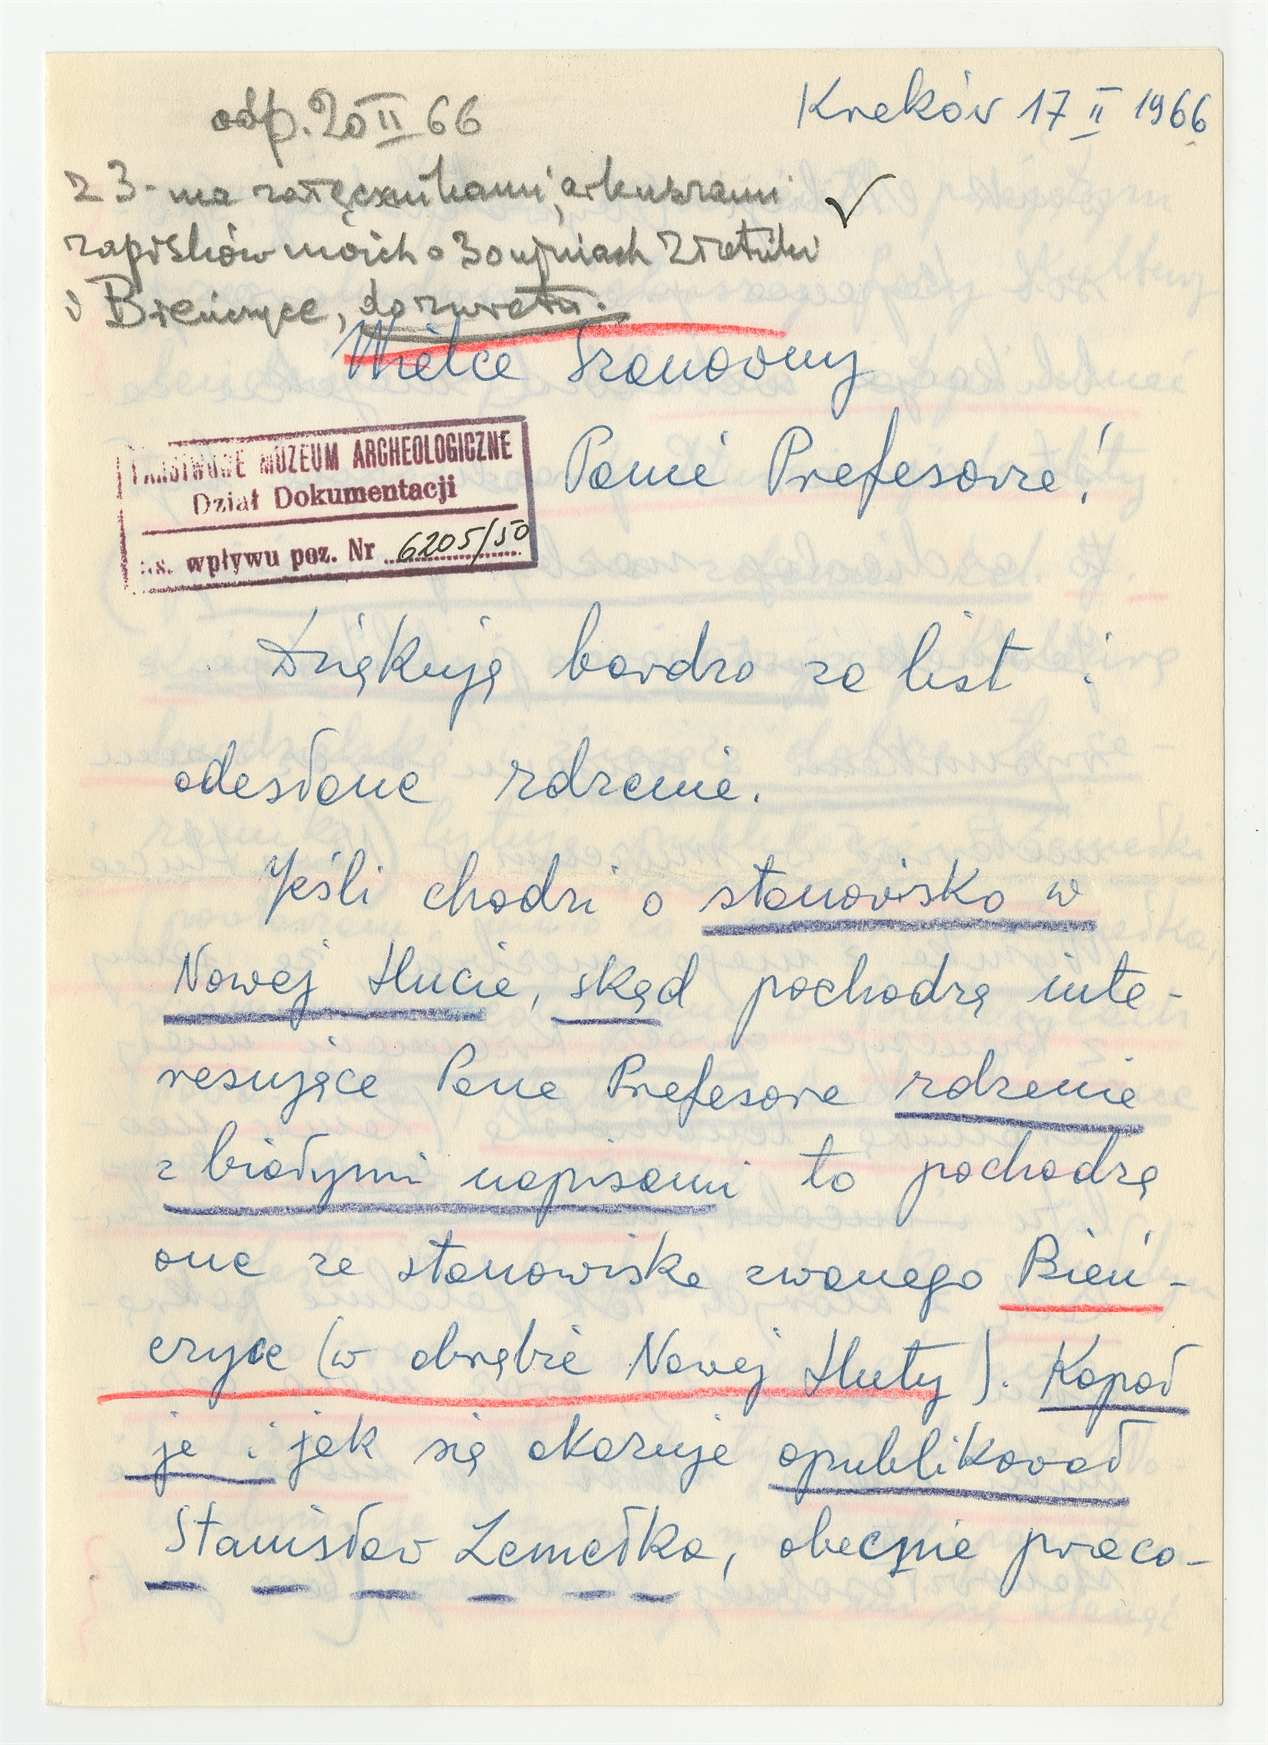 odp. 20 II 66
Kraków 17 II 1966
z 3-ma załącznikami, arkuszami
zapisków moich o 30 Zrotniki
i Bieńczyce, do zwrotu.
Wielce Szanowny
Panie Profesorze!
PAŃSTWOWE MUZEUM ARCHEOLOGICZNE
Dział Dokumentacji
ks. wpływu poz. Nr 6205/50
Dziękuję bardzo za list i
odesłane rdzenie.
Jeśli chodzi o stanowisko w
Nowej Hucie, skąd pochodzą inte-
resujące Pana Profesora rdzenie
z białymi napisami to pochodzą
one ze stanowiska zwanego Bień-
czyce (w obrębie Nowej Huty). Kopał
je i jak się okazuje opublikował
Stanisław Łomotko, obecnie praco-